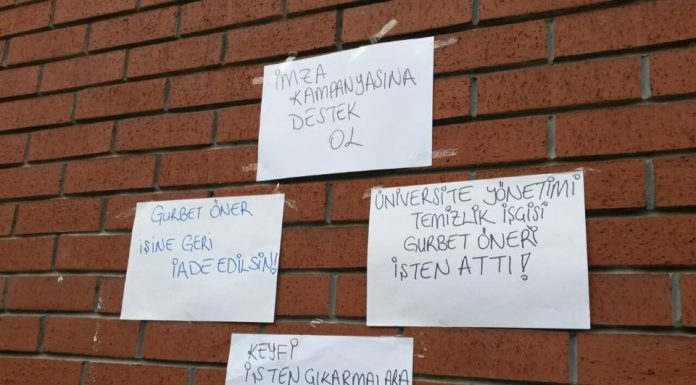 İMZA
KAMPANYASINA
DESTEK
OL
GURBET ÖNER
İŞİNE GERİ
İADE EDİLSİN!
ÜNİVERSİTE YÖNETİMİ
TEMİZLİK İŞGİSİ
GURBET ÖNERİ
İŞTEN ATTI!
KEYFİ
İŞTEN ÇIKARMALARA